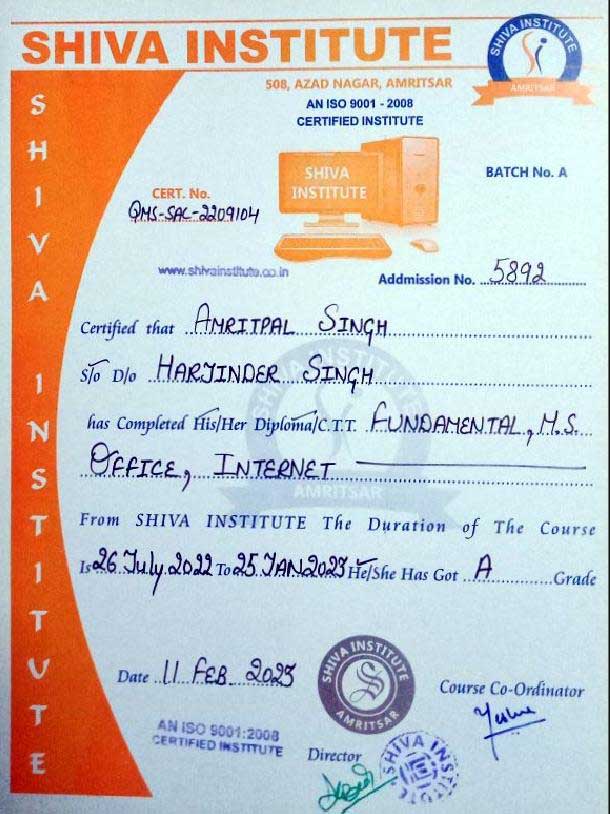 SHIVA INSTITUTE
SHIVA INSTITUTE
AMRITSAR
508, AZAD NAGAR, AMRITSAR
AN ISO 9001 - 2008
CERTIFIED INSTITUTE
SHIVA INSTITUTE
SHIVA
INSTITUTE
BATCH No. A
CERT. No.
QMS-SAC-2209104
www.shivainstitute.co.in
Addmission No. 5892
Certified that AMRITPAL SINGH
S/o D/o HARJINDER SINGH
has Completed His/Her Diploma/C.T.T. FUNDAMENTAL, M.S.
OFFICE, INTERNET
SHIVA INSTITUTE
AMRITSAR
From SHIVA INSTITUTE The Duration of The Course
Is 26 July 2022 To 25 JAN 2023 He/She Has Got A Grade
Date 11 FEB 2023
SHIVA INSTITUTE
AMRITSAR
Course Co-Ordinator
AN ISO 9001:2008
CERTIFIED INSTITUTE
Director
SHIVA INSTITUTE